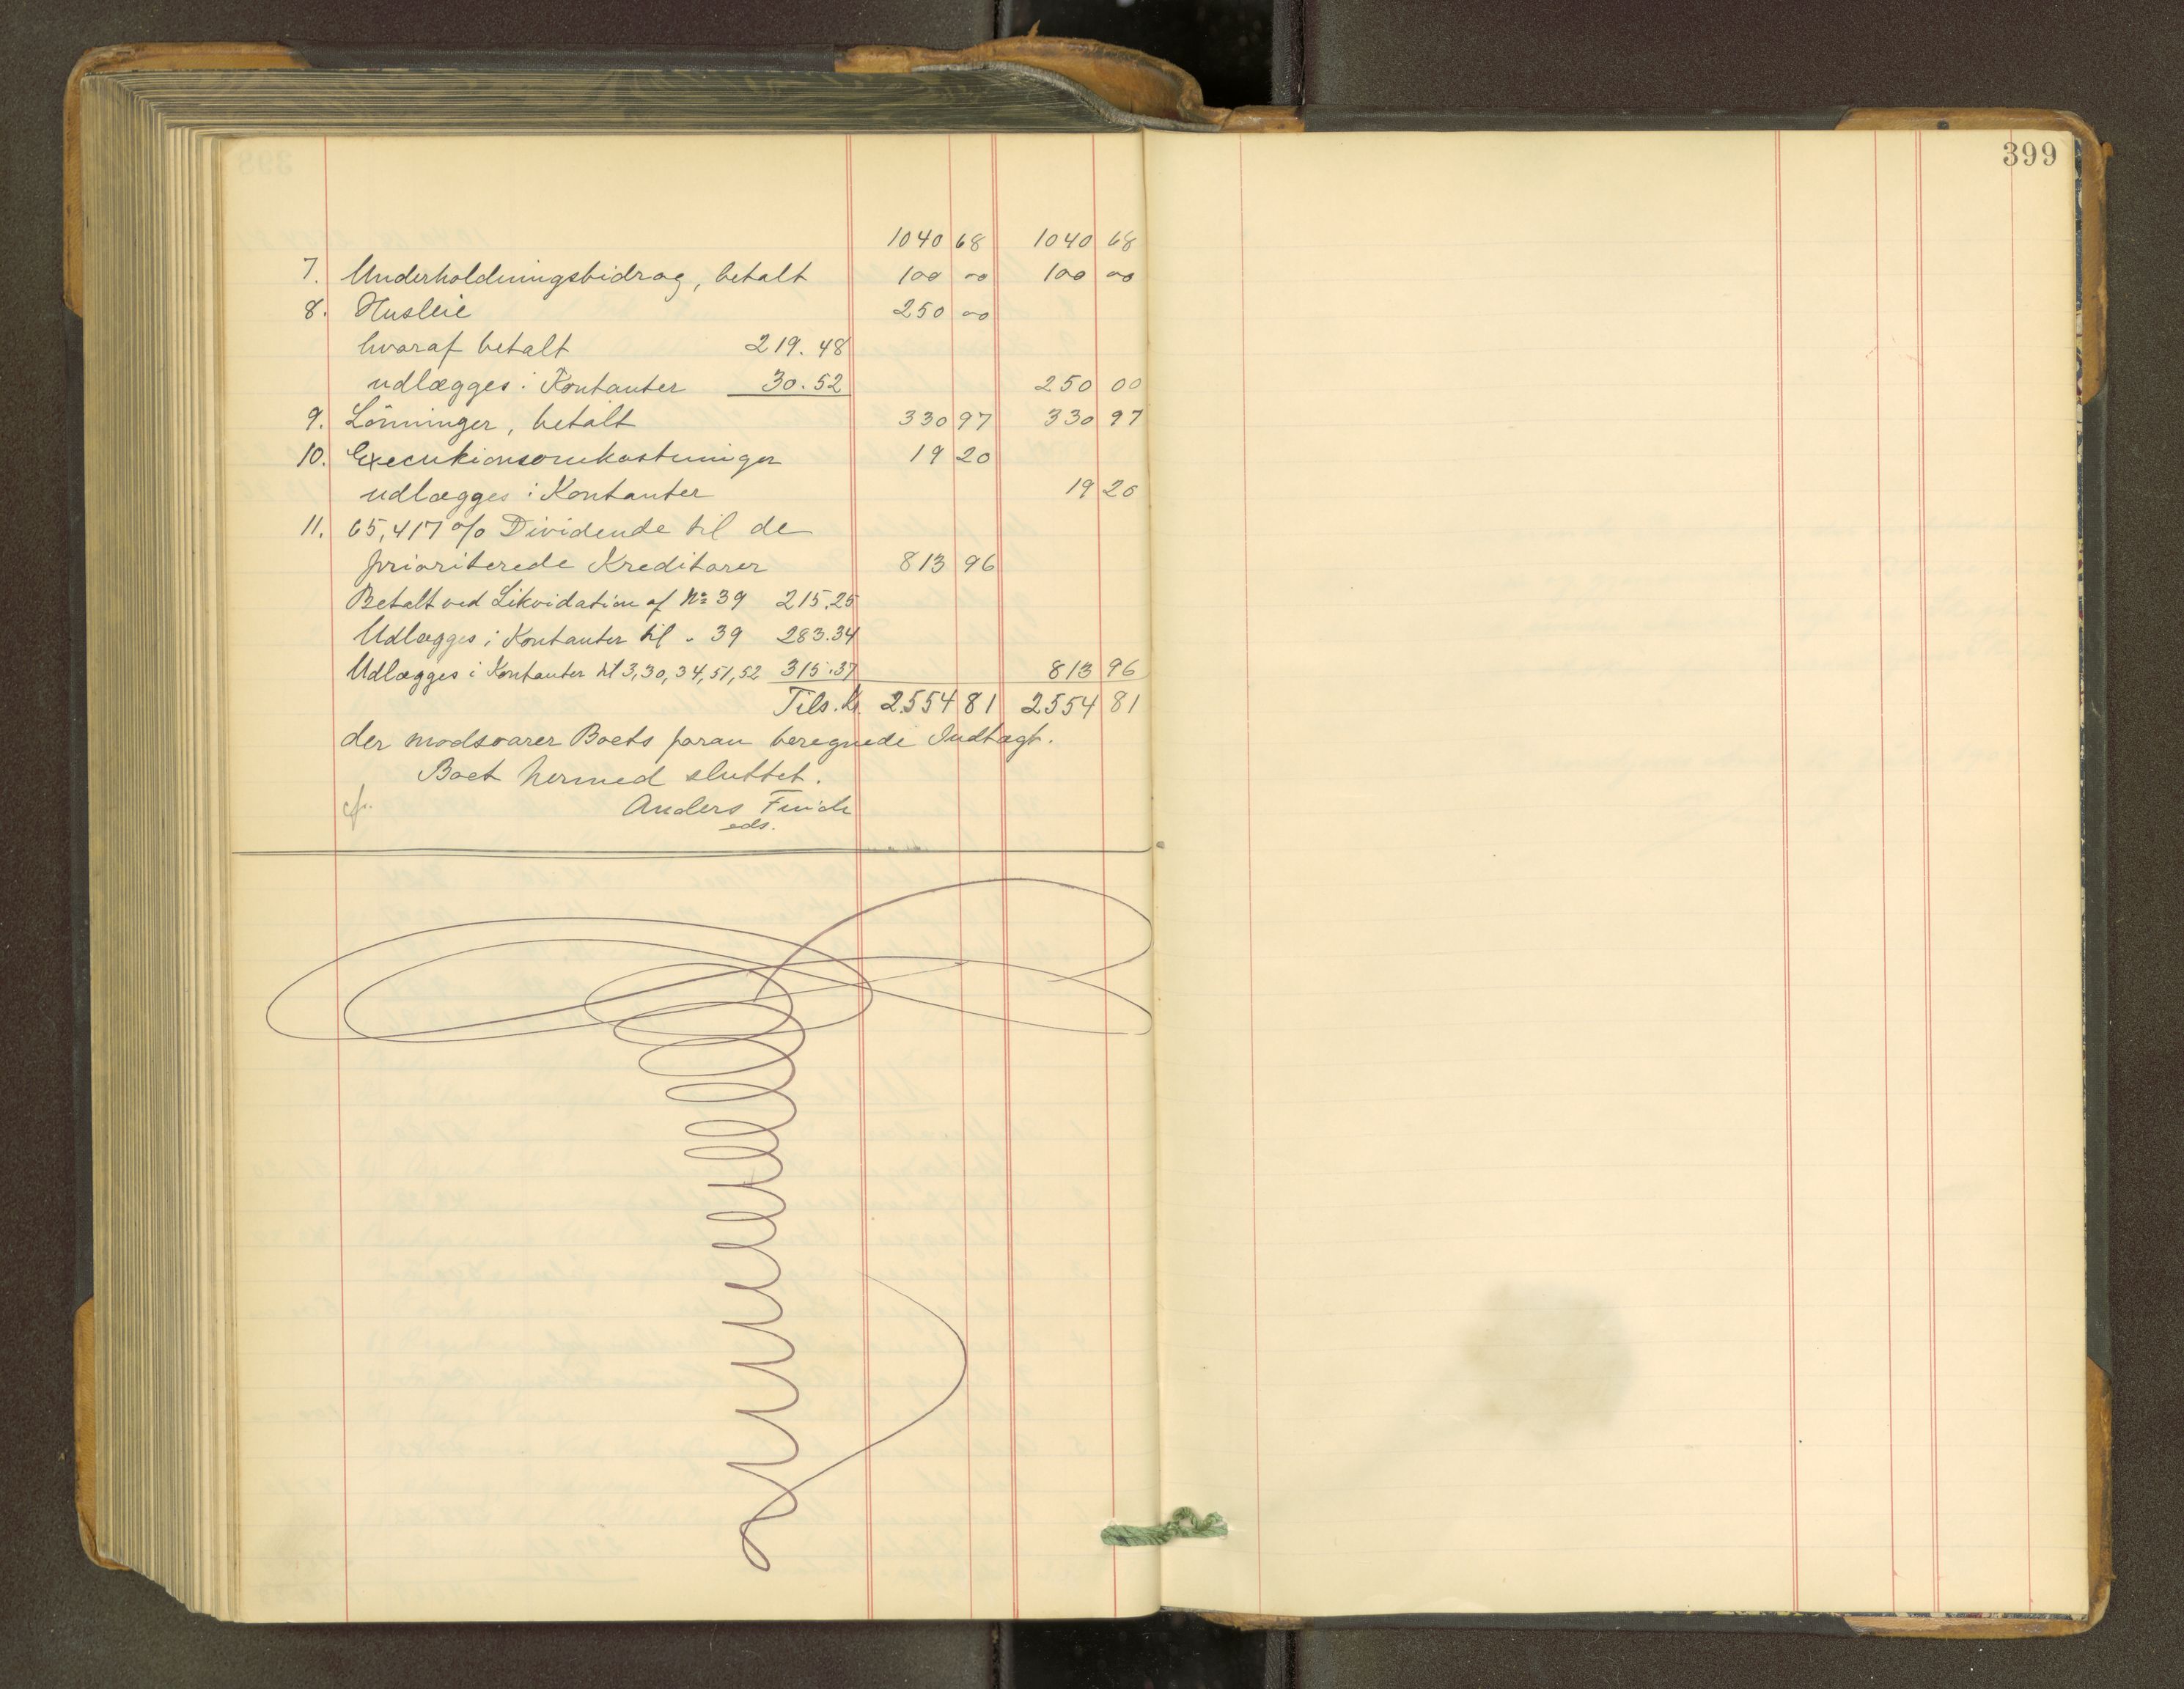 399
1040 68 1040 68
7. Underholdningsbidrag, betalt 100 00 100 00
8. Husleie 250 00
hvoraf betalt 219.48
udlægges i Kontanter 30.52 250 00
9. Lönninger, betalt 330 97 330 97
10. Executionsomkostninger 19 20
udlægges i Kontanter 19 20
11. 65,417 % Dividende til de
prioriterede Kreditorer 813 96
Betalt ved Likvidation af No 39 215.25
Udlægges i Kontanter til " 39 283.34
Udlægges i Kontanter til 3,30,34,51,52 315.37 813 96
Tils. Kr. 2554 81 2554 81
der modsvarer Boets foran beregnede Indtægt.
Boet hermed sluttet.
cf. Anders
eds.